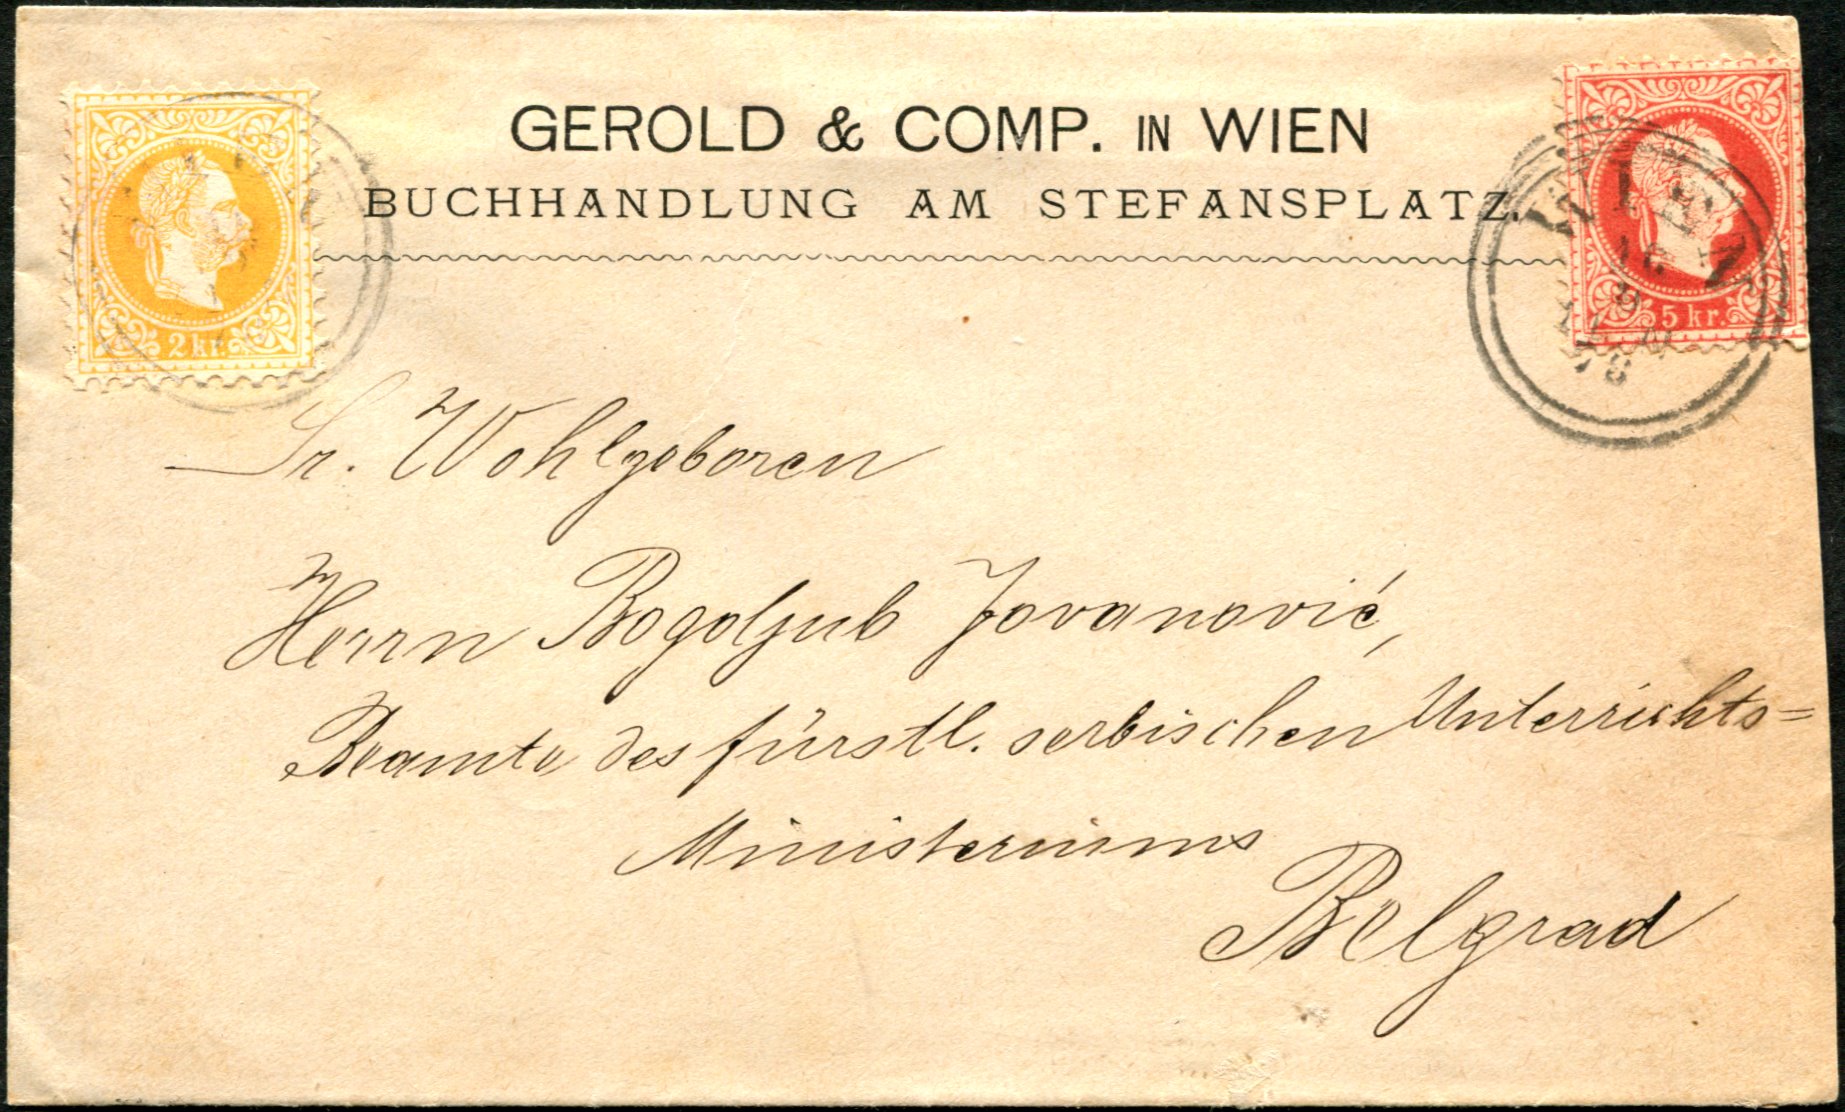 GEROLD & COMP. IN WIEN
BUCHHANDLUNG AM STEFANSPLATZ.
2 kr.
5 kr.
WIEN
Sr. Wohlgeboren
Herrn Bogoljub Jovanović,
Beamte des fürstl. serbischen Unterrichts=
Ministeriums
Belgrad